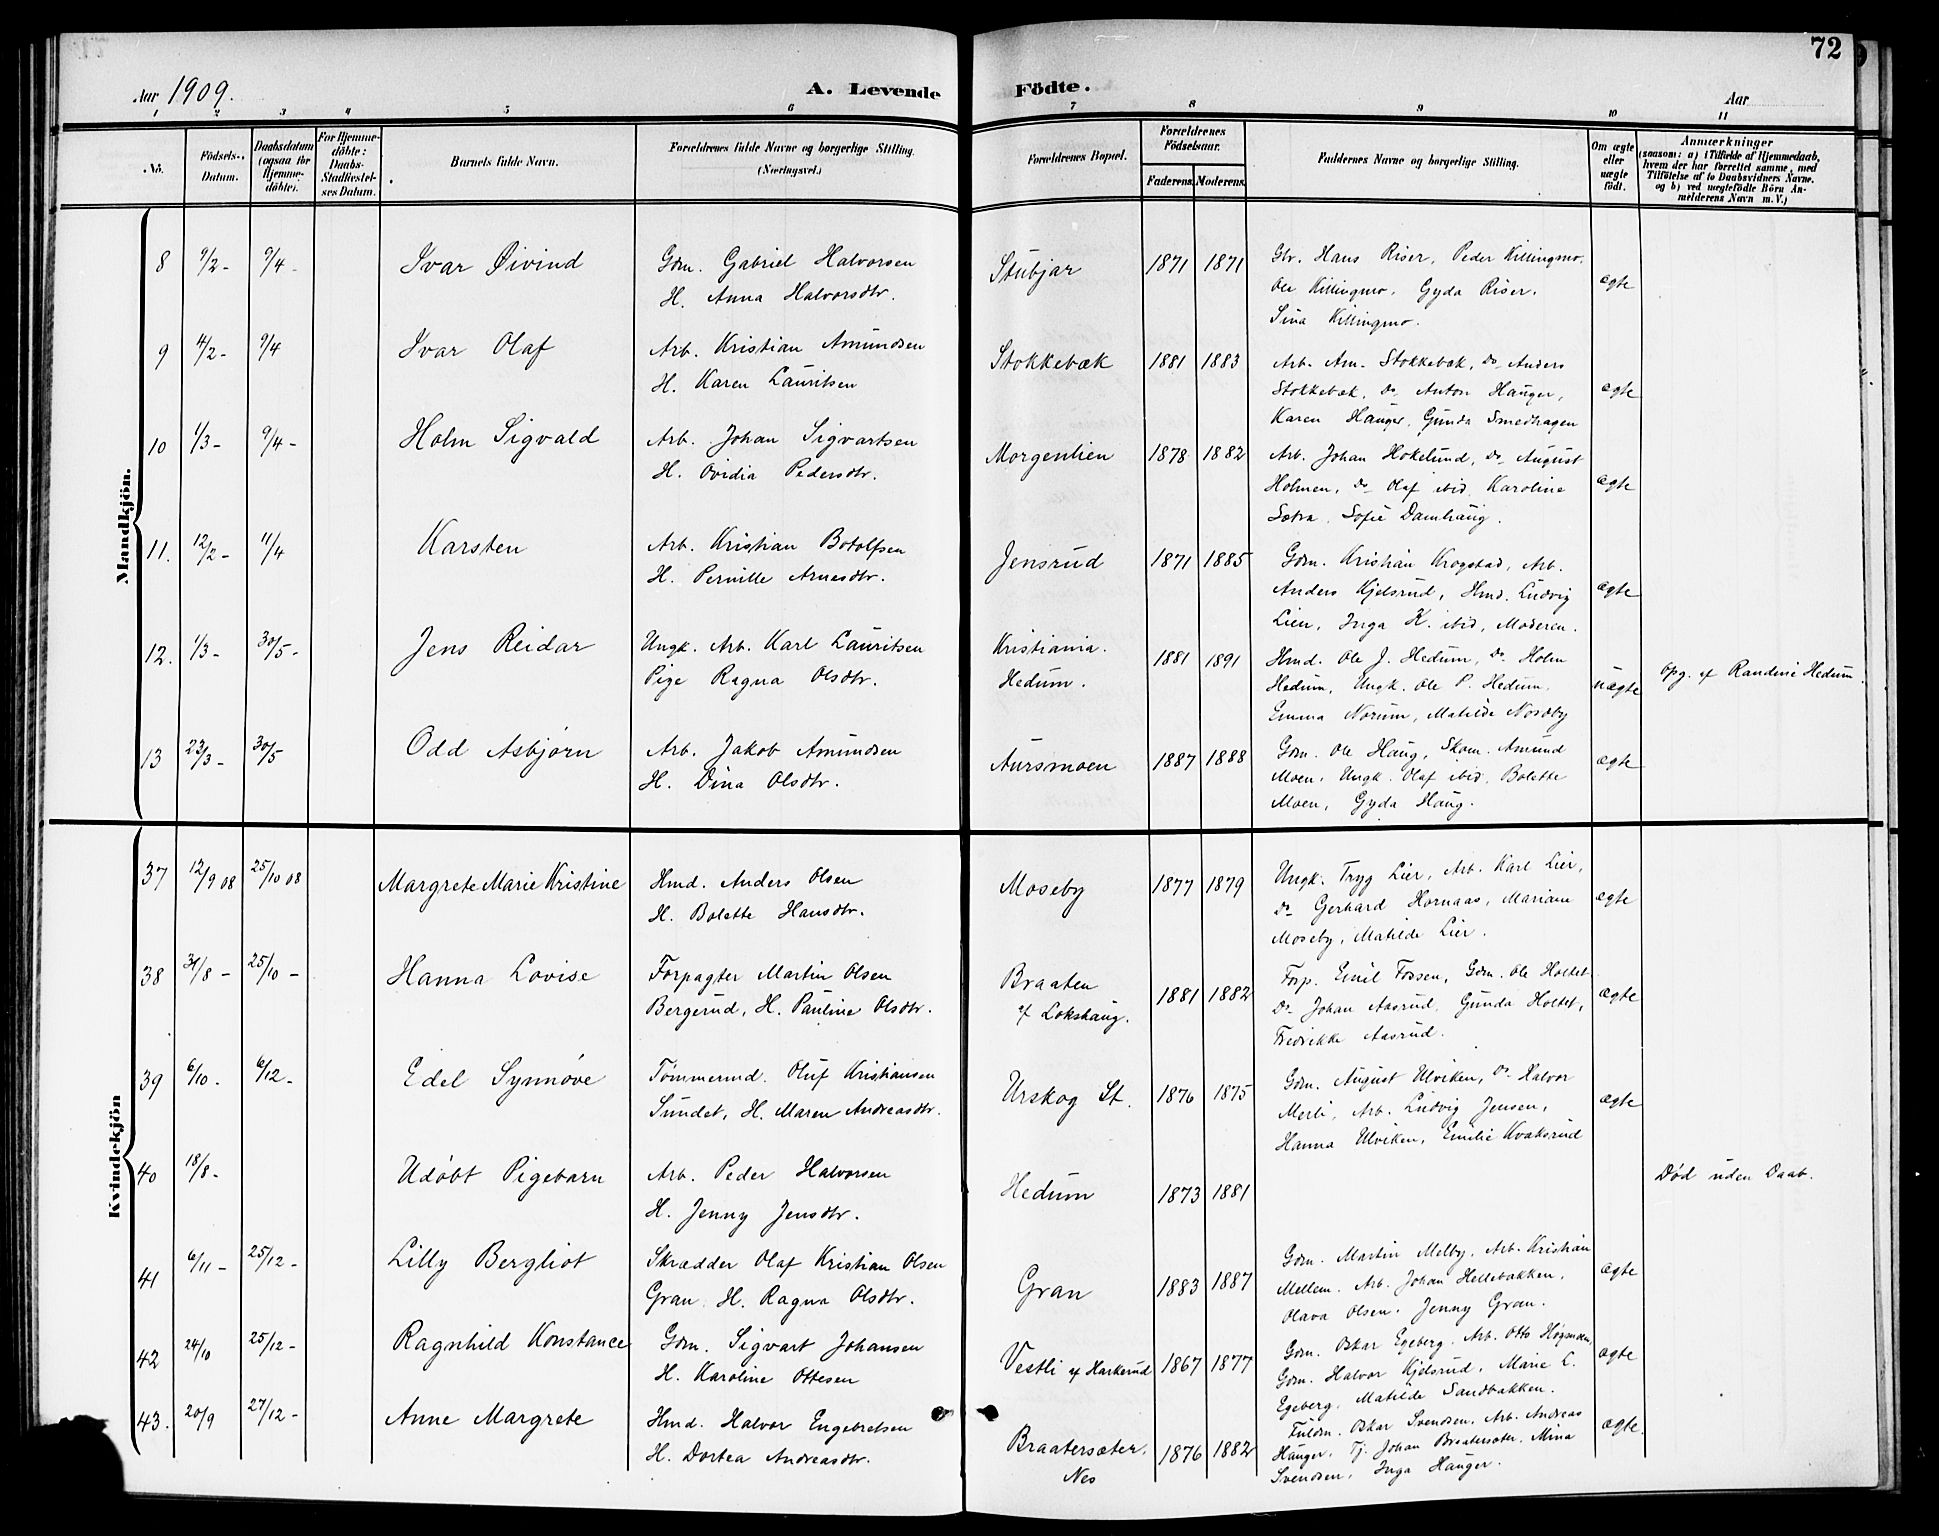 72
Aar 1909.
A. Levende Födte.
Aar
1 2 3 4 5 6 7 8 9 10 11
No.
Födsels-Datum.
Daabsdatum (ogsaa for Hjemmedöbte).
For Hjemmedöbte: Daabs-Stadfæstelses Datum.
Barnets fulde Navn.
Forældrenes fulde Navne og borgerlige Stilling. (Næringsvei.)
Forældrenes Bopæl.
Forældrenes Födselsaar.
Faderens. Moderens.
Faddernes Navne og borgerlige Stilling.
Om ægte eller uægte födt.
Anmærkninger
(saasom: a) i Tilfælde af Hjemmedaab, hvem der har forrettet samme, med Tilföielse af to Daabsvidners Navne. og b) ved uægtefödte Börn Anmelderens Navn m. V.)
Mandkjön.
8 9/2- 9/4- Ivar Øivind Gdm. Gabriel Halvorsen Stubjar 1871 1871 Gbr. Hans Riser, Peder Killingmo. ægte
H. Anna Halvorsdtr. Ole Killingmo, Gyda Riser.
Sina Killingmo.
9 4/2- 9/4 Ivar Olaf Arb. Kristian Amundsen Stokkebæk 1881 1883 Arb. Am. Stokkebæk, Do Anders ægte
H. Karen Lauritsen Stokkebæk, Do Anton Hauger,
Karen Hauger, Gunda Smedhagen
10 1/3- 9/4- Holm Sigvald Arb. Johan Sigvartsen Morgenlien 1878 1882 Arb. Johan Hokelund, Do August ægte
H. Ovidia Pedersdtr. Holmen, Do Olaf ibid, Karoline
Sætra, Sofie Damhaug.
11. 12/2- 11/4 Karsten Arb. Kristian Botolfsen Jensrud 1871 1885 Gdm. Kristian Krogstad, Arb. ægte
H. Pernille Arnesdtr. Anders Kjelsrud, Hmd. Ludvig
Lien, Inga K. ibid, Moderen.
12. 1/3- 30/5- Jens Reidar Ungk. Arb. Karl Lauritsen Kristiania. 1881 1891 Hmd. Ole J. Hedum, Do Holm uægte Opg. af Randine Hedum.
Pige Ragna Olsdtr. Hedum. Hedum, Ungk. Ole P. Hedum,
Emma Norum, Matilde Nordby
13 23/3- 30/5 Odd Asbjørn Arb. Jakob Amundsen Aursmoen 1887 1888 Gdm. Ole Haug, Skom. Amund ægte
H. Dina Olsdtr. Moen, Ungk. Olaf ibid, Bolette
Moen, Gyda Haug.
Kvindekjön
37 12/9 08 25/10 08 Margrete Marie Kristine Hmd. Anders Olsen Moseby 1877 1879 Ungk. Tryg Lier, Arb. Karl Lier, ægte
H. Bolette Hansdtr. Do Gerhard Hornaas, Mariane
Moseby, Matilde Lier.
38 31/8- 25/10- Hanna Lovise Forpagter Martin Olsen Braaten 1881 1882 Forp. Emil Fossen, Gdm. Ole Holtet ægte
Bergerud, H. Pauline Olsdtr. af Lokshaug. Do Johan Aasrud, Gunda Holtet,
Fredrikke Aasrud.
39 6/10. 6/12- Edel Synnøve Tømmermd. Oluf Kristiansen Urskog St. 1876 1875 Gdm. August Ulviken, Do Halvor ægte
Sundet, H. Maren Andreasdtr. Merli, Arb. Ludvig Jensen,
Hanna Ulviken, Emilie Kvaksrud
40 18/8- Udøbt Pigebarn Arb. Peder Halvorsen Hedum 1873 1881 Død uden Daab.
H. Jenny Jensdtr.
41 6/11- 25/12- Lilly Bergliot Skrædder Olaf Kristian Olsen Gran 1883 1887 Gdm. Martin Melby, Arb. Kristian ægte
Gran, H. Ragna Olsdtr. Mellem, Arb. Johan Hellebakken,
Olava Olsen, Jenny Gran.
42 24/10 25/12- Ragnhild Konstance Gdm. Sigvart Johansen Vestli af Harkerud 1867 1877 Gdm. Oskar Egeberg, Arb. Otto Høgsmoen, ægte
H. Karoline Ottesen Gdm. Halvor Kjelsrud, Marie C.
Egeberg, Matilde Sandbakken.
43. 20/9 27/12- Anne Margrete Hmd. Halvor Engebretsen Braatersæter, 1876 1882 Fuldm. Oskar Svendsen, Arb. Andreas ægte.
H. Dortea Andreasdtr. Nes Hauger, Tj. Johan Braatersæter, Mina
Svendsen, Inga Hauger.